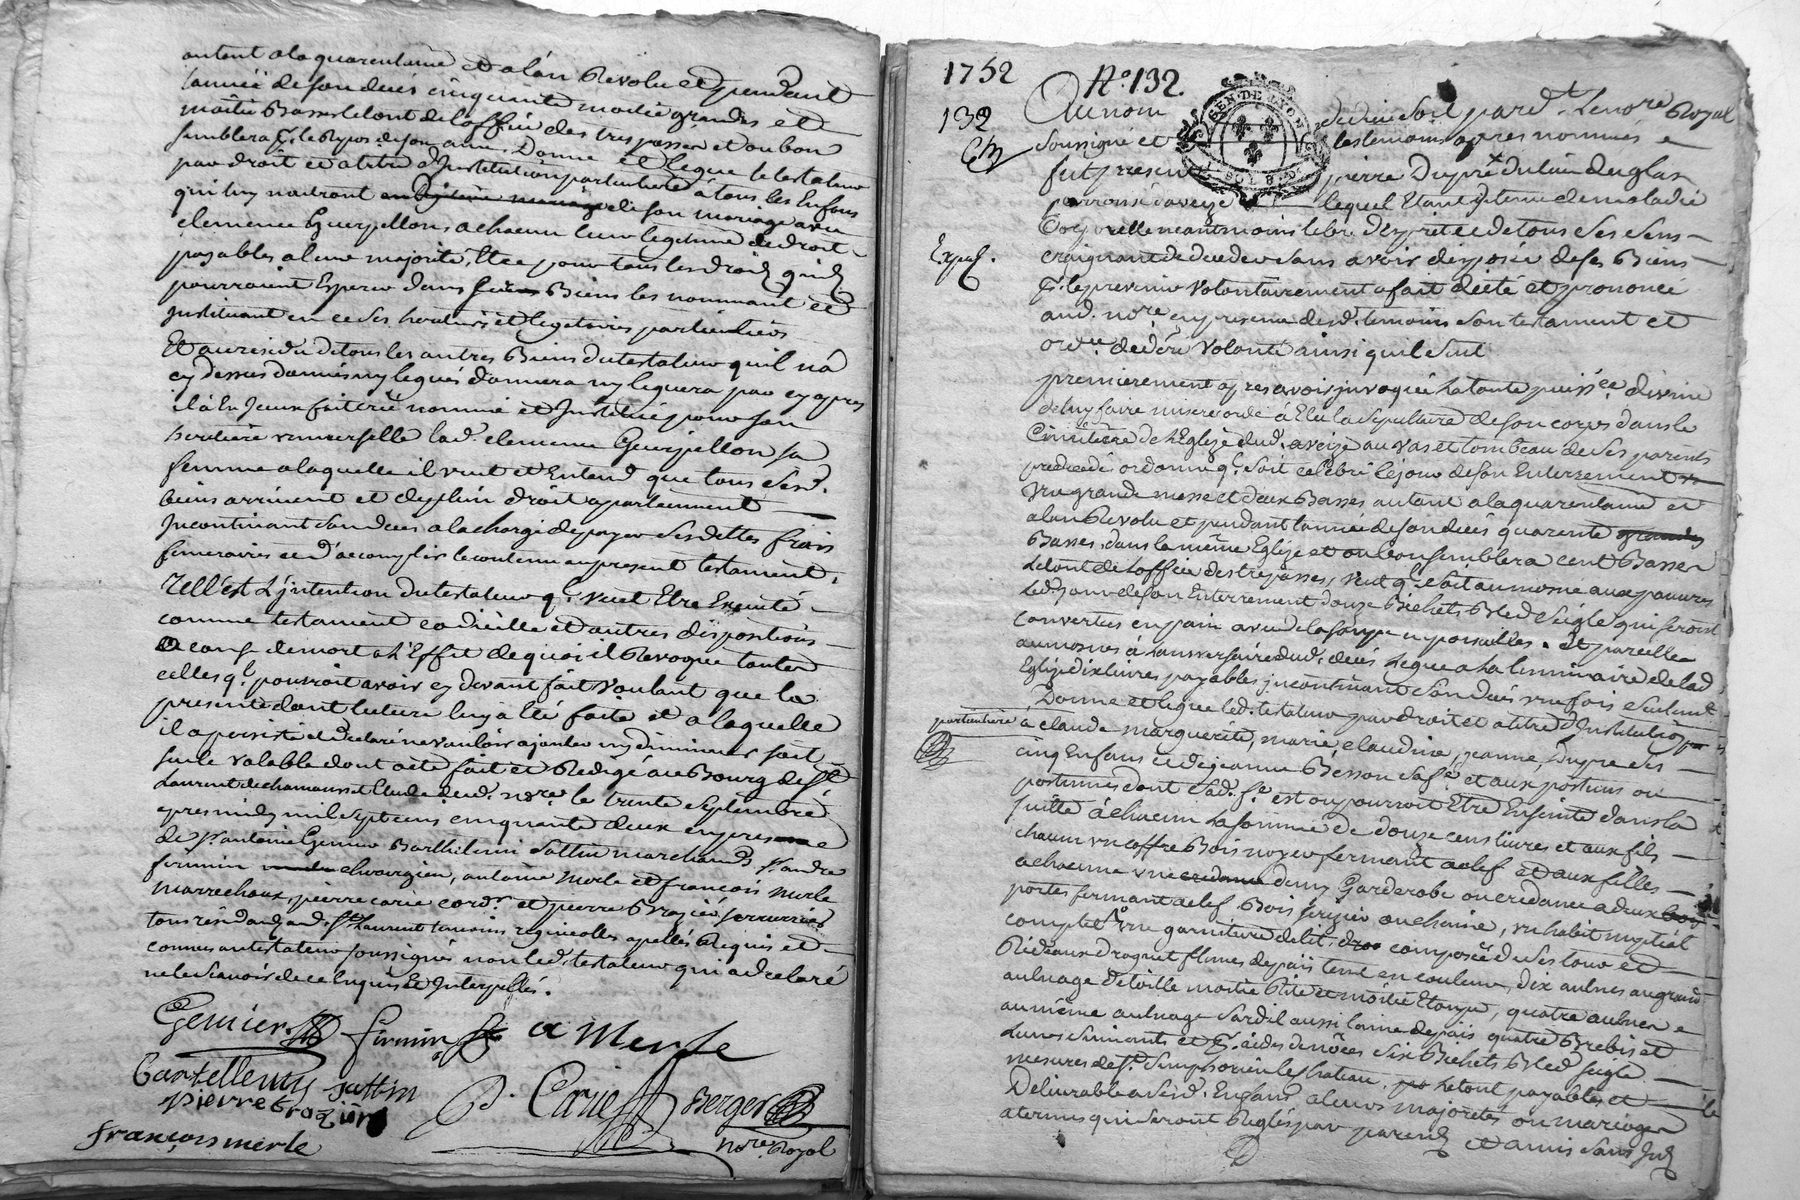 autant a la quarentaine et a l'an Revolu et pendant
l'anneé de son deces cinquante moitié grandes et
moitié Basses le tout de l'office des trepassés et ou bon
semblera p.r le Repos de son ame. Donne et Legue le testateur
par droit et a titre d'Institution particuliere a tous les Enfans
qui luy naitront de son mariage avec
clemence Guerpillon, a chacun leur legitime de droit
payables a leur majorité, Et ce pour tous les droits qu'ils
pourroient Esperer dans ses Biens les nommant et
Instituant en ce ses heritiers et legataires particuliers
Et au residu de tous les autres Biens du testateur qu'il n'a
cy dessus donnés ny legués donnera ny leguera par cy apres
il a En Iceux fait crée nommé et Institué pour son
heritiere universelle lad. clemence Guerpillon sa
femme a laquelle il veut et Entend que tous sesd.
biens arrivent et de plein droit appartiennent
Incontinant son deces a la charge de payer ses dettes frais
funeraires et d'accomplir le contenu au present testament.
Telle est L'intention du testateur q.l veut Etre Executé
comme testament codicille et autres dispositions
a cause de mort a L'Effet de quoi il Revoque toutes
celles q.l pourroit avoir cy devant fait voulant que la
presente dont lecture luy a Eté faite et a laquelle
il a persisté et declaré ne vouloir ajouter ny diminuer soit
seule valable dont acte fait et Redigé au Bourg de S.t
Laurent de chamousset Etude dud. no.re le trente Septembre
apres midy mil sept cens cinquante deux en presence
de S.r antoine Genier Barthelemi Sattin marchands S.r andré
firmin chirurgien, antoine merle et françois merle
marrechaux, pierre carié cord.r et pierre Brazier serrurier
tous residants aud. S.t Laurent temoins appellés Requis et
connus au testateur soussignés non led. testateur qui a declaré
ne le scavoir de ce Enquis et Interpellé.
Genier firmin a Merle
Bartellemy sattin P. Carié Berger
pierre brazier
françois merle no.re Royal
1752 N.o 132.
132 GEN. DE LYON
Au nom de dieu soit par d.t Le no.re Royal
soussigné et les temoins apres nommés
fut present pierre Dupré du lieu
parroisse d'aveize lequel Etant detenu de maladie
Corporelle neantmoins libre d'esprit et de tous ses sens
Exped.
craignant de deceder sans avoir disposé de ses Biens
p.r les prevenir volontairement a fait dicté et prononcé
aud. no.re en presence desd. temoins son testament et
ord.ce de der.e volonté ainsi qu'il suit
premierement apres avoir invoqué La toute puiss.ce divine
de luy faire misericorde a Elu la sepulture de son corps dans le
Cimitiere de L'Eglise dud. aveize au vas et tombeau de ses parents
predecedés ordonne q.l soit celebré le jour de son Enterrement
une grande messe et deux Basses autant a la quarentaine et
a l'an Revolu et pendant l'année de son deces quarente
Basses, dans la même Eglise et ou bon semblera cent Basses
Le tout de L'office des trepassés, veut q.l soit aumosné aux pauvres
Led. jour de son Enterrement douze Bichets Bled seigle qui seront
convertis en pain avec de la soupe et pareilles
aumosnes a L'anniversaire dud. deces Legue a La luminaire de lad
Eglise dix livres payables incontinant son deces une fois seulement
Donne et legue led. testateur par droit et a titre d'Institution
particuliere a claude marguerite, marie, claudine, jeanne, Dupré ses
cinq Enfans et de jeanne Besson sa f.e et aux postume ou
postumes dont sad. f.e est ou pourroit Etre Enceinte dans la
suitte a chacun La somme de douze cens livres et aux fils
chacun un coffre Bois noyer fermant a clef et aux filles
a chacune une demy Garderobe ou credance a deux
portes fermant a clef Bois serizier ou chaine, un habit nuptial
complet une garniture de lit, composée de ses tour et
Rideaux droguet fil mes de païs teint en couleur, dix aulnes au grand
aulnage de toille moitié Rite et moitié Etoupe, quatre aulnes
au même aulnage Sardil aussi laine de païs quatre Brebis et
Leurs suivants et six Bichets Bled seigle
mesures de S.t Simphorien le chateau, Le tout payables et
Delivrables a sesd. Enfans a leurs majorités ou mariages
a termes qui seront Reglés par parents et amis sans Int.